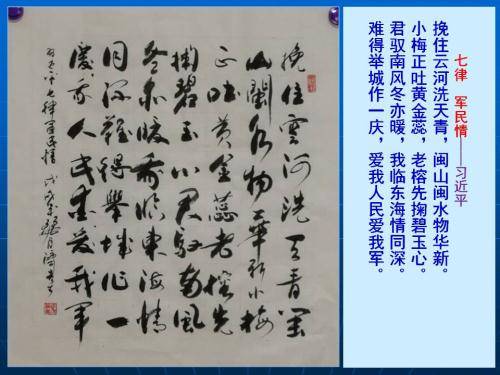 七律 军民情——习近平
挽住云河洗天青，闽山闽水物华新。
小梅正吐黄金蕊，老榕先掬碧玉心。
君驭南风冬亦暖，我临东海情同深。
难得举城作一庆，爱我人民爱我军。
挽住雲河洗天青閩
山閩水物華新小梅
正吐黄金蕊老榕先
掬碧玉心君馭南風
冬亦暖我临東海情
同深難得舉城作一
慶爱我人民爱我軍
习近平七律軍民情 戊戌年